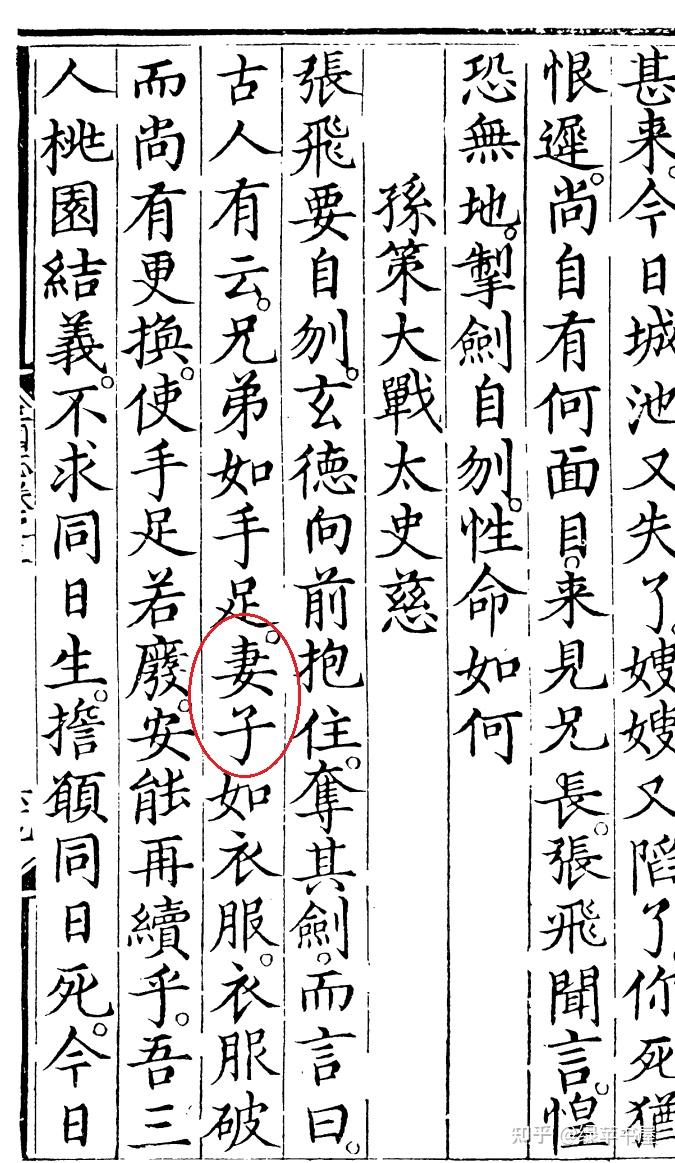 甚来。今日城池又失了。嫂嫂又陷了。你死猶
恨遲。尚自有何面目。来見兄長。張飛聞言。惶
恐無地。掣劍自刎。性命如何
孫策大戰太史慈
張飛要自刎。玄德向前抱住。奪其劍。而言曰。
古人有云。兄弟如手足。妻子如衣服。衣服破
而尚有更換。使手足若廢。安能再續乎。吾三
人桃園結義。不求同日生。擔願同日死。今日
知乎